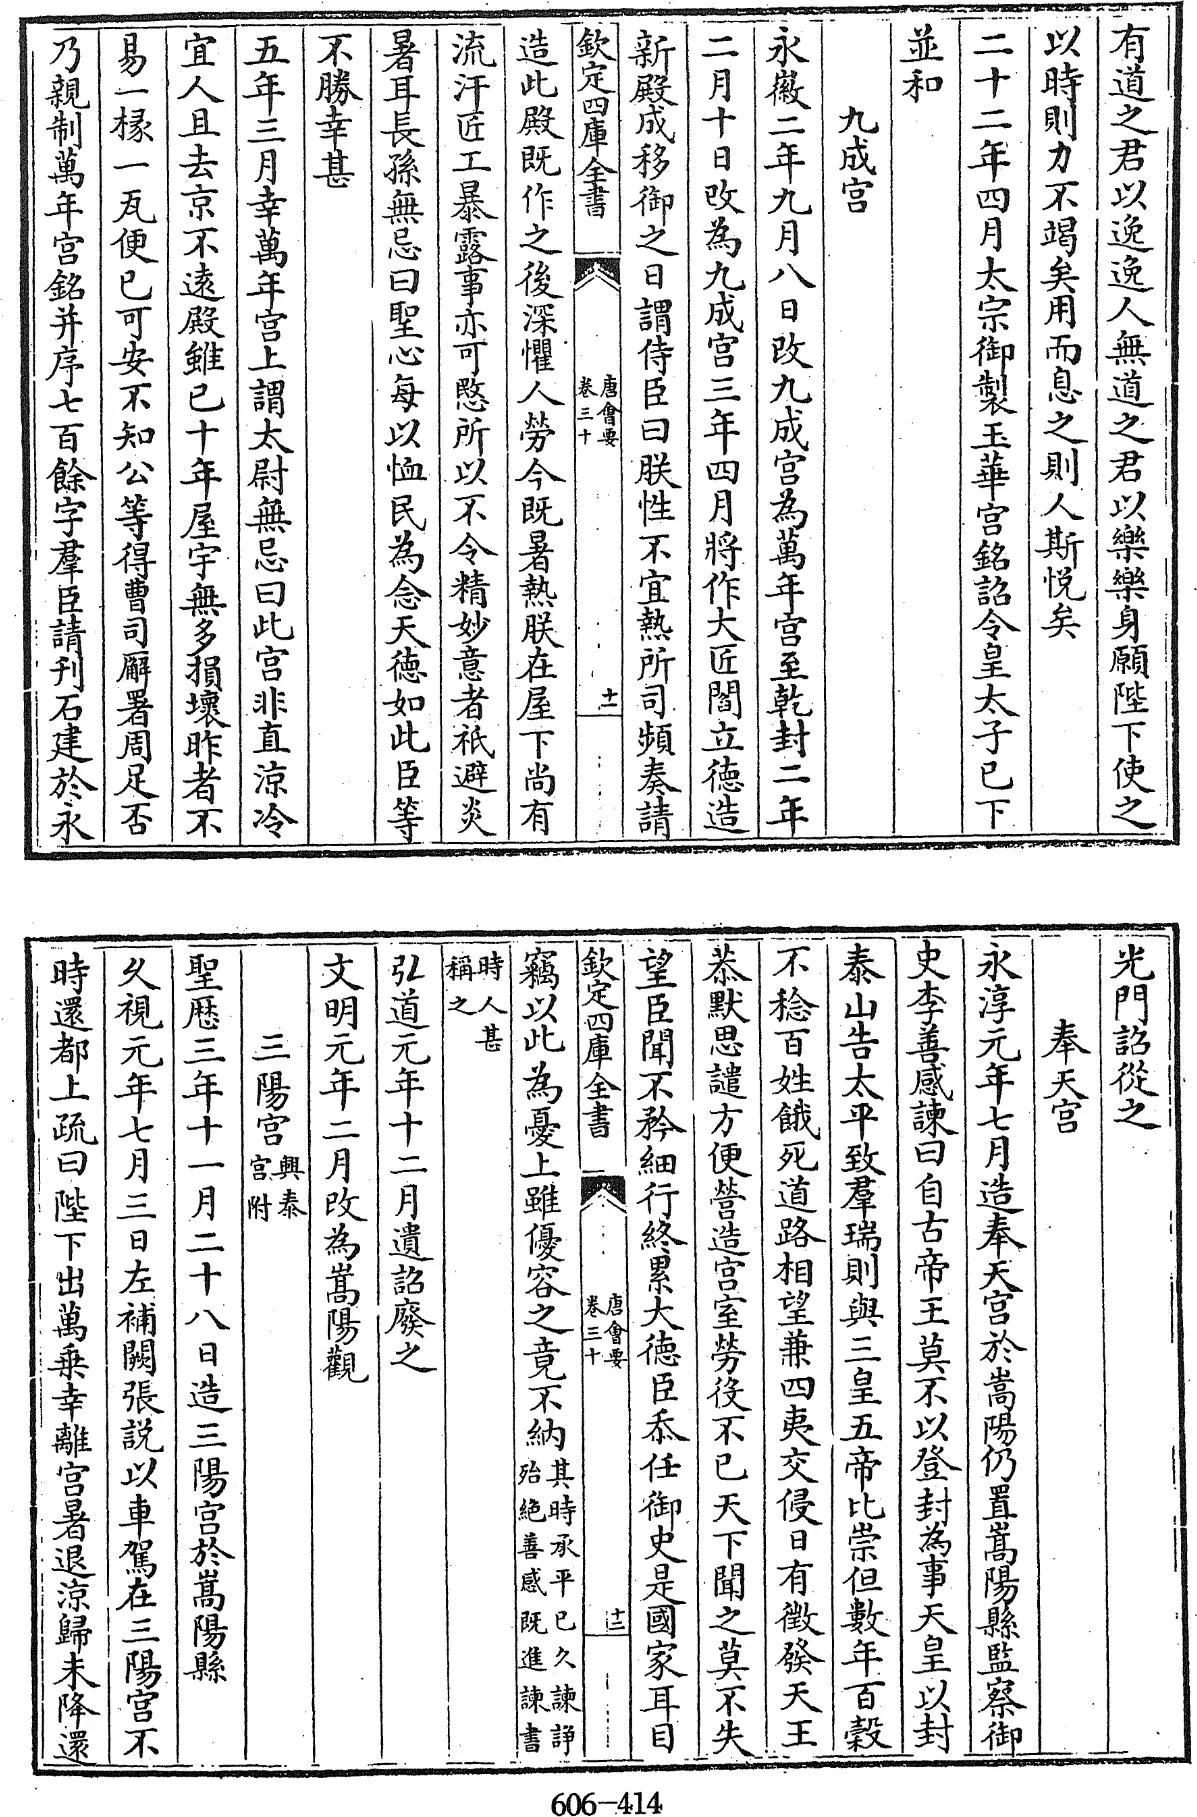 有道之君以逸逸人無道之君以樂樂身願陛下使之
以時則力不竭矣用而息之則人斯悦矣
二十二年四月太宗御製玉華宫銘詔令皇太子已下
並和
九成宫
永徽二年九月八日改九成宫為萬年宫至乾封二年
二月十日改為九成宫三年四月將作大匠閻立德造
新殿成移御之日謂侍臣曰朕性不宜熱所司頻奏請
欽定四庫全書
唐會要
卷三十
十一
造此殿既作之後深懼人勞今既暑熱朕在屋下尚有
流汗匠工暴露事亦可愍所以不令精妙意者祇避炎
暑耳長孫無忌曰聖心每以恤民為念天德如此臣等
不勝幸甚
五年三月幸萬年宫上謂太尉無忌曰此宫非直涼冷
宜人且去京不遠殿雖已十年屋宇無多損壞昨者不
易一椽一瓦便已可安不知公等得曹司廨署周足否
乃親制萬年宫銘并序七百餘字羣臣請刋石建於永
光門詔從之
奉天宫
永淳元年七月造奉天宫於嵩陽仍置嵩陽縣監察御
史李善感諫曰自古帝王莫不以登封為事天皇以封
泰山告太平致羣瑞則與三皇五帝比崇但數年百穀
不稔百姓餓死道路相望兼四夷交侵日有徵發天王
恭默思譴方便營造宫室勞役不已天下聞之莫不失
望臣聞不矜細行終累大德臣忝任御史是國家耳目
欽定四庫全書
唐會要
卷三十
十二
竊以此為憂上雖優容之竟不納其時承平已久諫諍
殆絶善感既進諫書
時人甚
稱之
弘道元年十二月遺詔廢之
文明元年二月改為嵩陽觀
三陽宫興泰
宫附
聖厯三年十一月二十八日造三陽宫於嵩陽縣
久視元年七月三日左補闕張説以車駕在三陽宫不
時還都上疏曰陛下出萬乗幸離宫暑退涼歸未降還
606-414